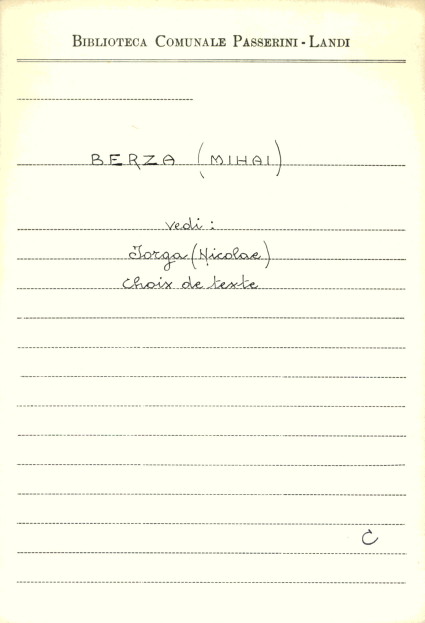 BIBLIOTECA COMUNALE PASSERINI - LANDI
BERZA (MIHAI)
vedi :
Jorga (Nicolae)
Choix de texte
C